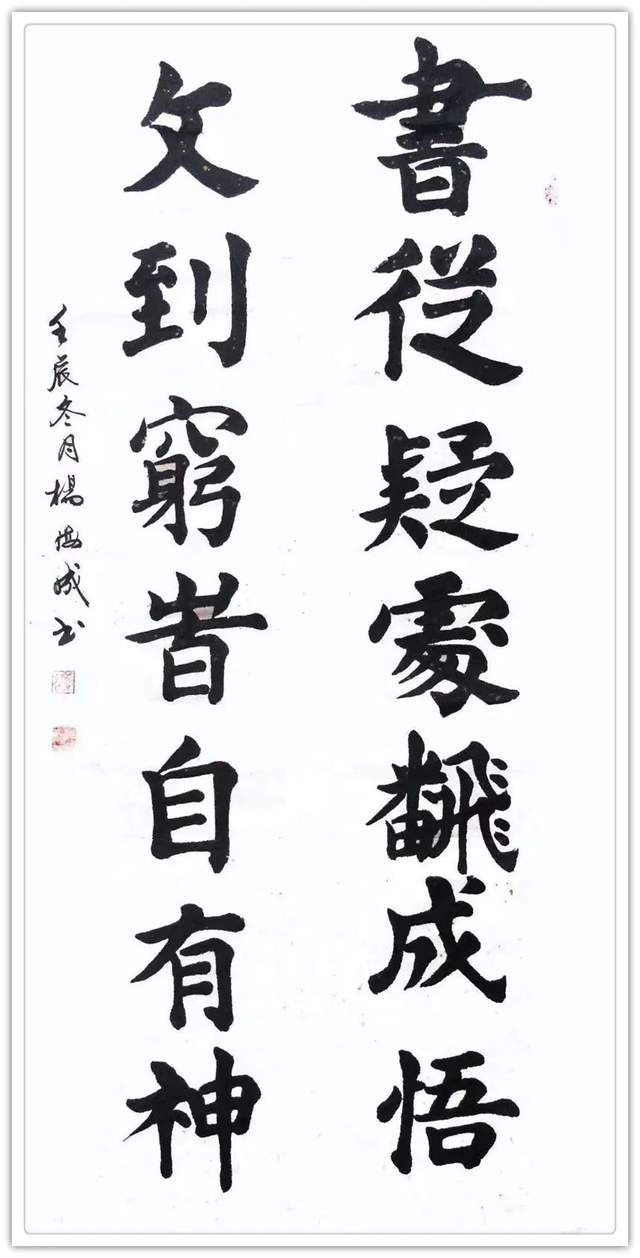 書従疑處飜成悟
文到窮旹自有神
壬辰冬月楊海成书